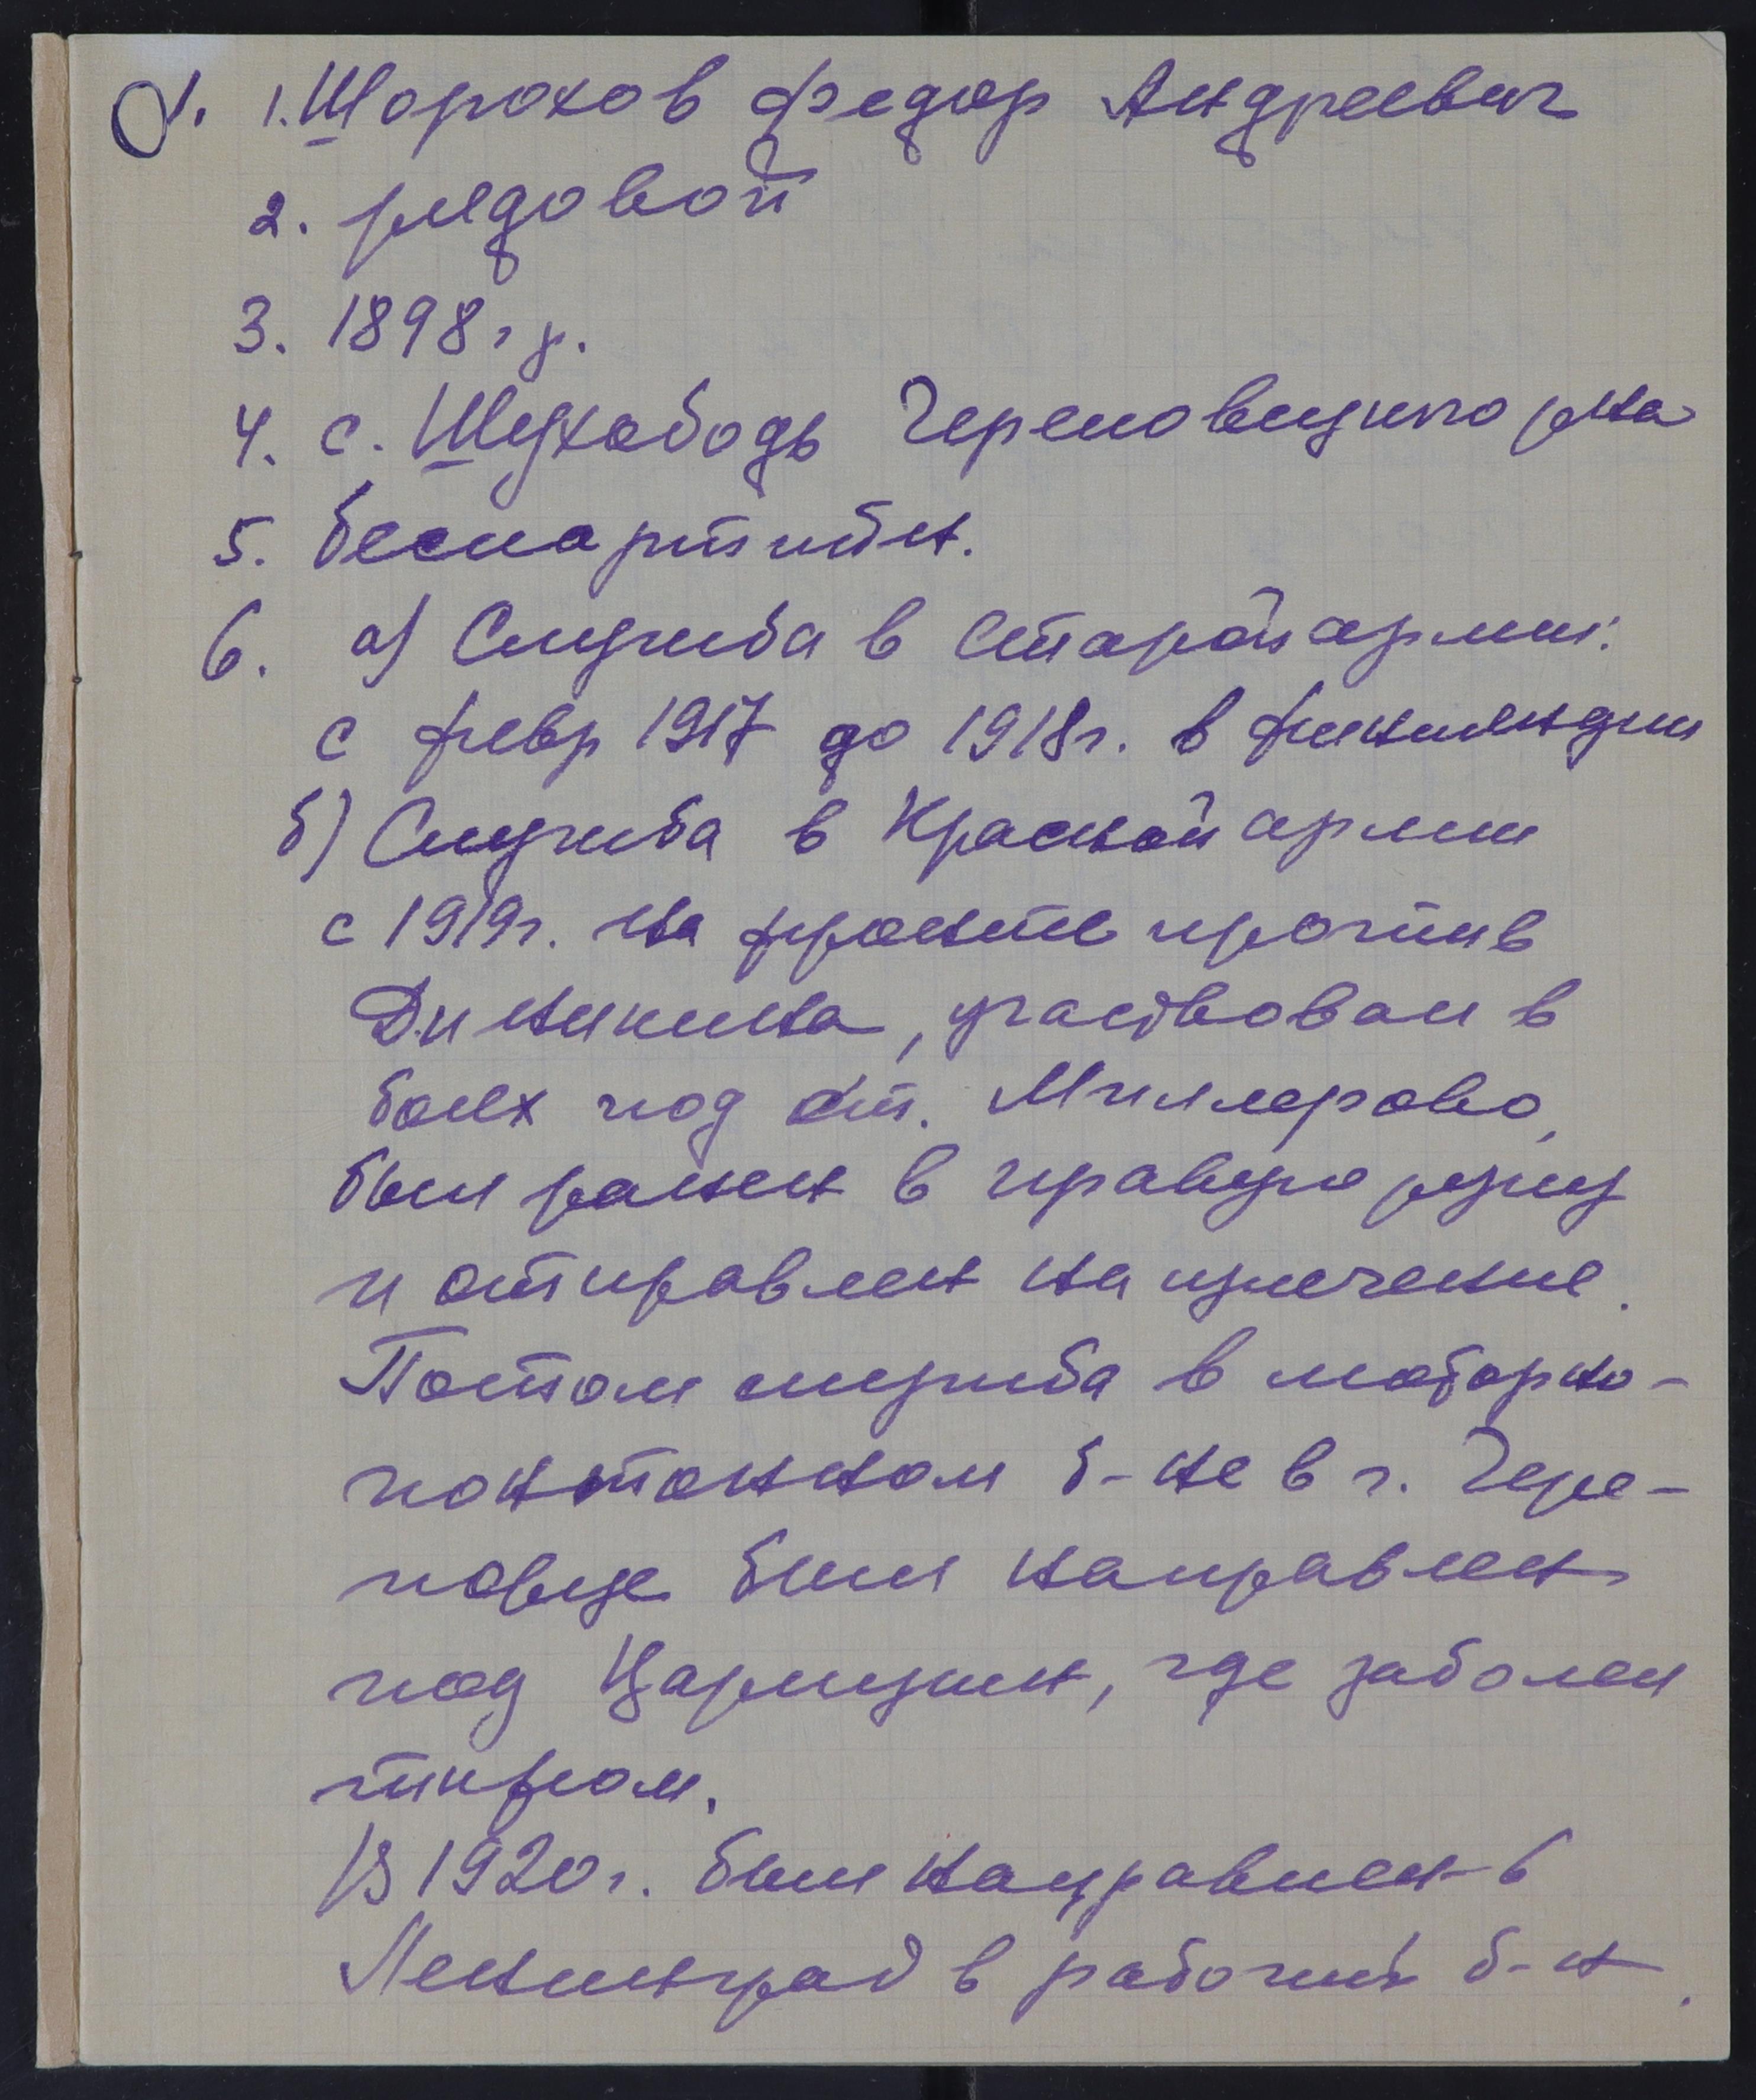 1. 1. Шорохов Федор Андреевич
2. рядовой
3. 1898 г р.
4. с. Шухободь Череповецкого р-на
5. беспартийн.
6. а) Служба в Старой армии:
с февр 1917 до 1918 г. в финляндии
б) Служба в Красной армии
с 1919 г. на фронте против
Дникина, участвовал в
боях под ст. Миллерово,
был ранен в правую руку
и отправлен на излечение.
Потом служба в моторно-
понтонном б-не в г. Чере-
повце был направлен
под Царицин, где заболел
тифом.
В 1920 г. был направлен в
Ленинград в рабочий б-н.